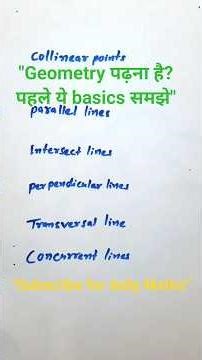 Collinear points
"Geometry पढ़ना है?
पहले ये basics समझे"
parallel lines
Intersect lines
perpendicular lines
Transversal line
Concurrent lines
"Subscribe for daily Maths"